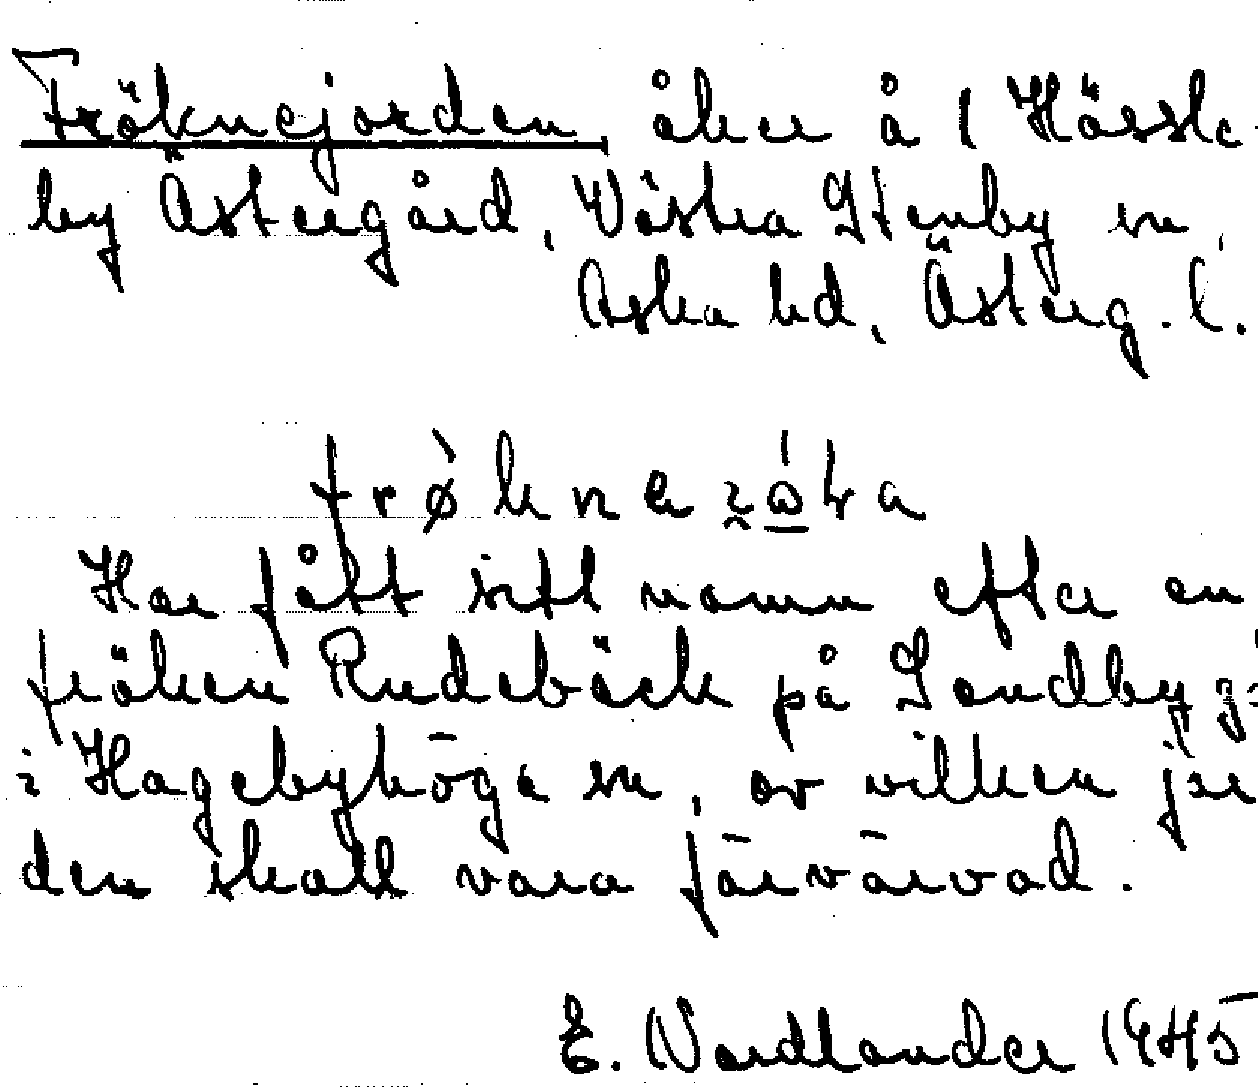 Fröknejorden, åker å 1 Hässle-
by Östergård, Västra Stenby sn,
Aska hd, Österg. l.
Har fått sitt namn efter en
fröken Rudebäck på Sondby g:
i Hagebyhöga sn, av vilken jor
den skall vara förvärvad.
E. Nordlander 1945